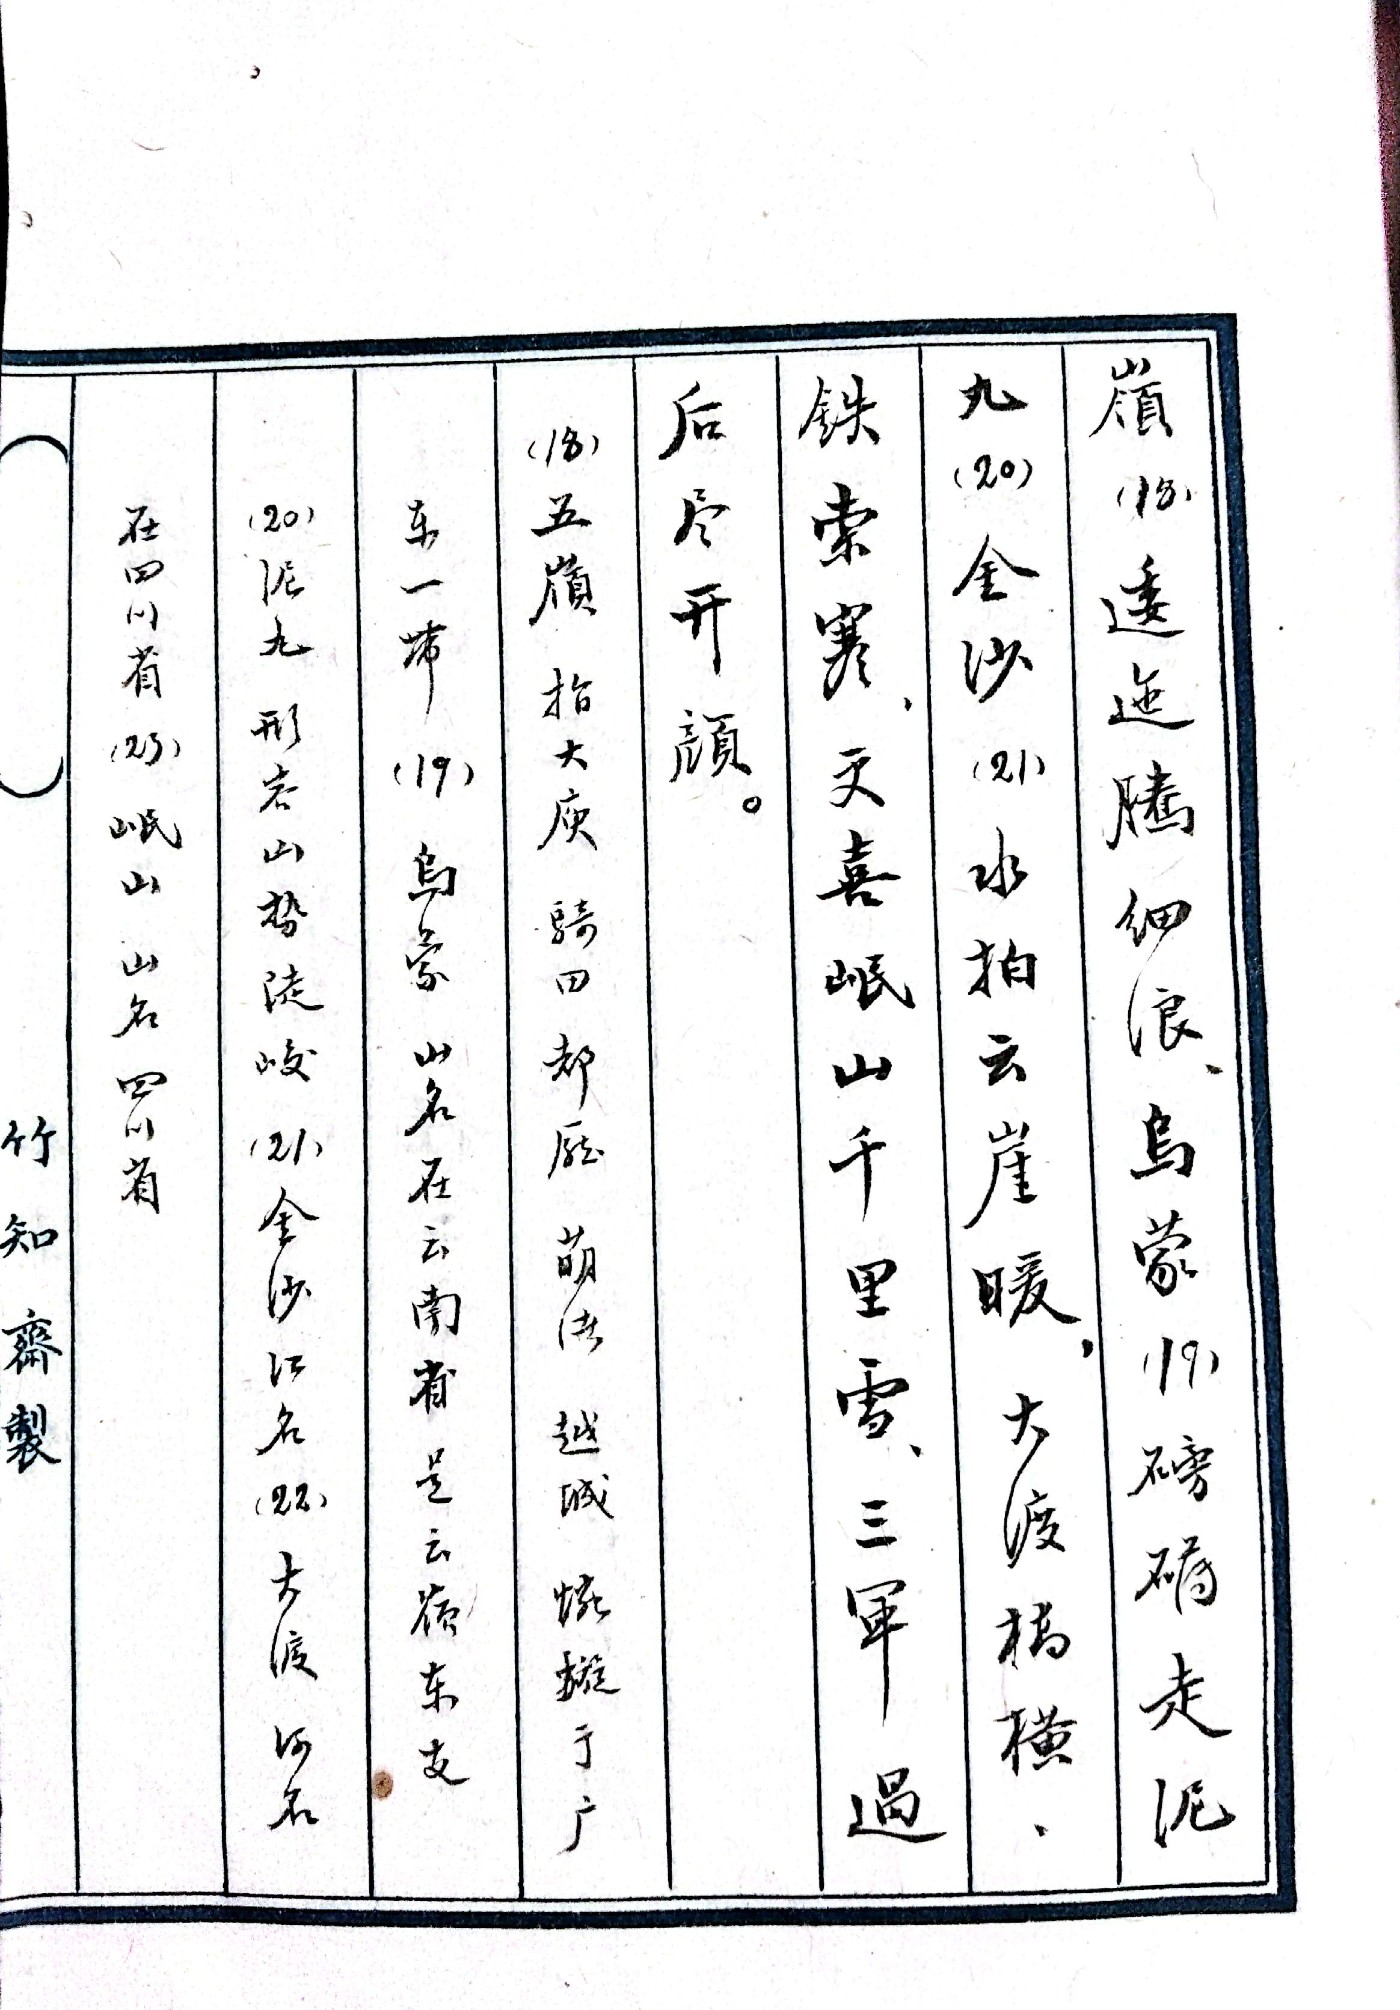 嶺(18)逶迤腾细浪、烏蒙(19)磅礴走泥
丸(20)金沙(21)水拍云崖暖，大渡桥横、
鉄索寒，更喜岷山千里雪、三軍過
后尽开顔。
(18)五嶺 指大庾 騎田 都庞 萌渚 越城 蜿蜒于广
东一带 (19)烏蒙 山名在云南省是云嶺东支
(20)泥丸 形容山势陡峻(21)金沙江名(22)大渡河名
在四川省(23)岷山 山名四川省
竹知齋製